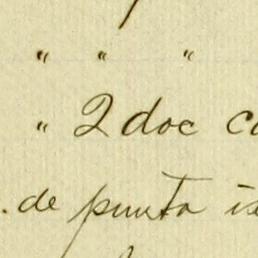 " " "
" 2 doc
. de punta